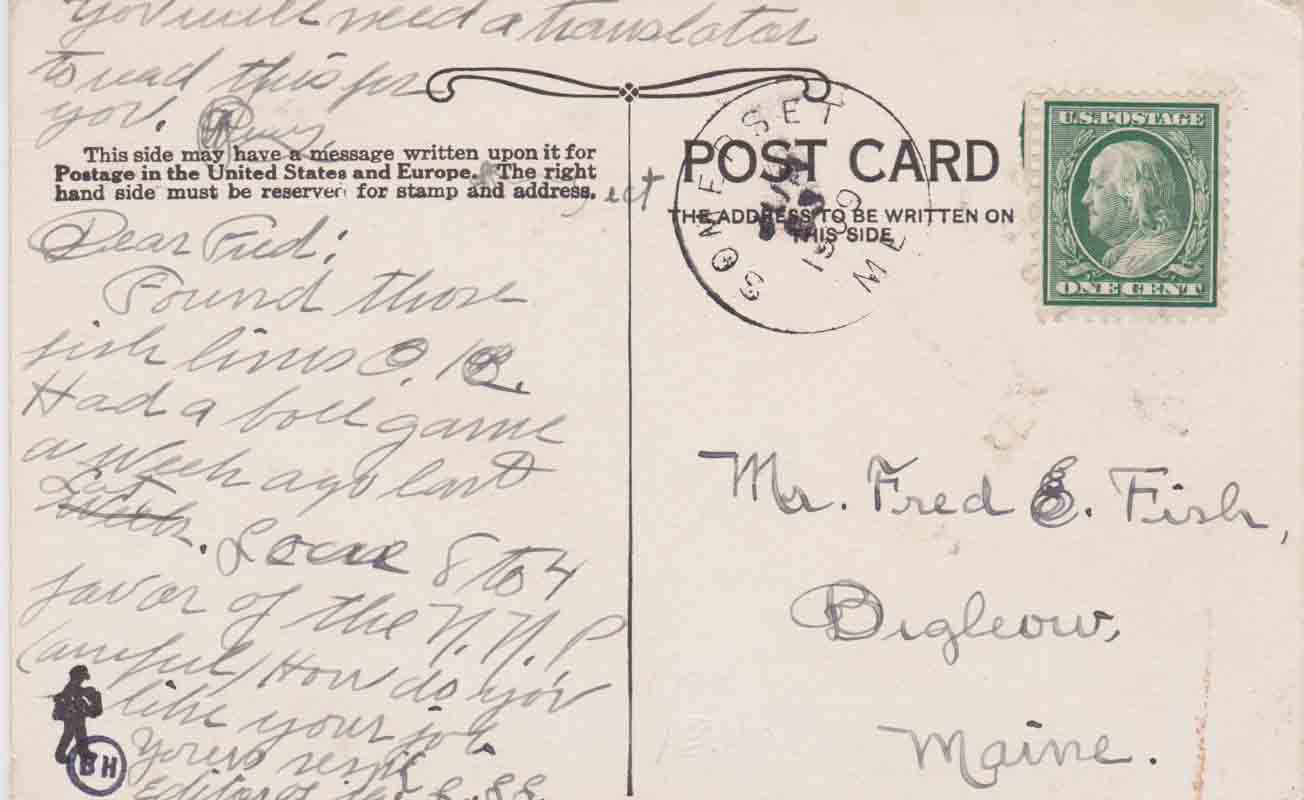 You will need a translator
to read this for
you.
This side may have a message written upon it for
Postage in the United States and Europe. The right
hand side must be reserved for stamp and address.
Dear Fred:
Found those
fish lines O.K.
Had a ball game
a week ago last
Sat
Week. Score 8 to 4
favor of the N.N.P
(awful) How do you
like your job
Yours
Editor of
BH
POST CARD
THE ADDRESS TO BE WRITTEN ON
THIS SIDE
SOMERSET
1909
ME
U.S. POSTAGE
ONE CENT
Mr. Fred E. Fish,
Bigleow,
Maine.